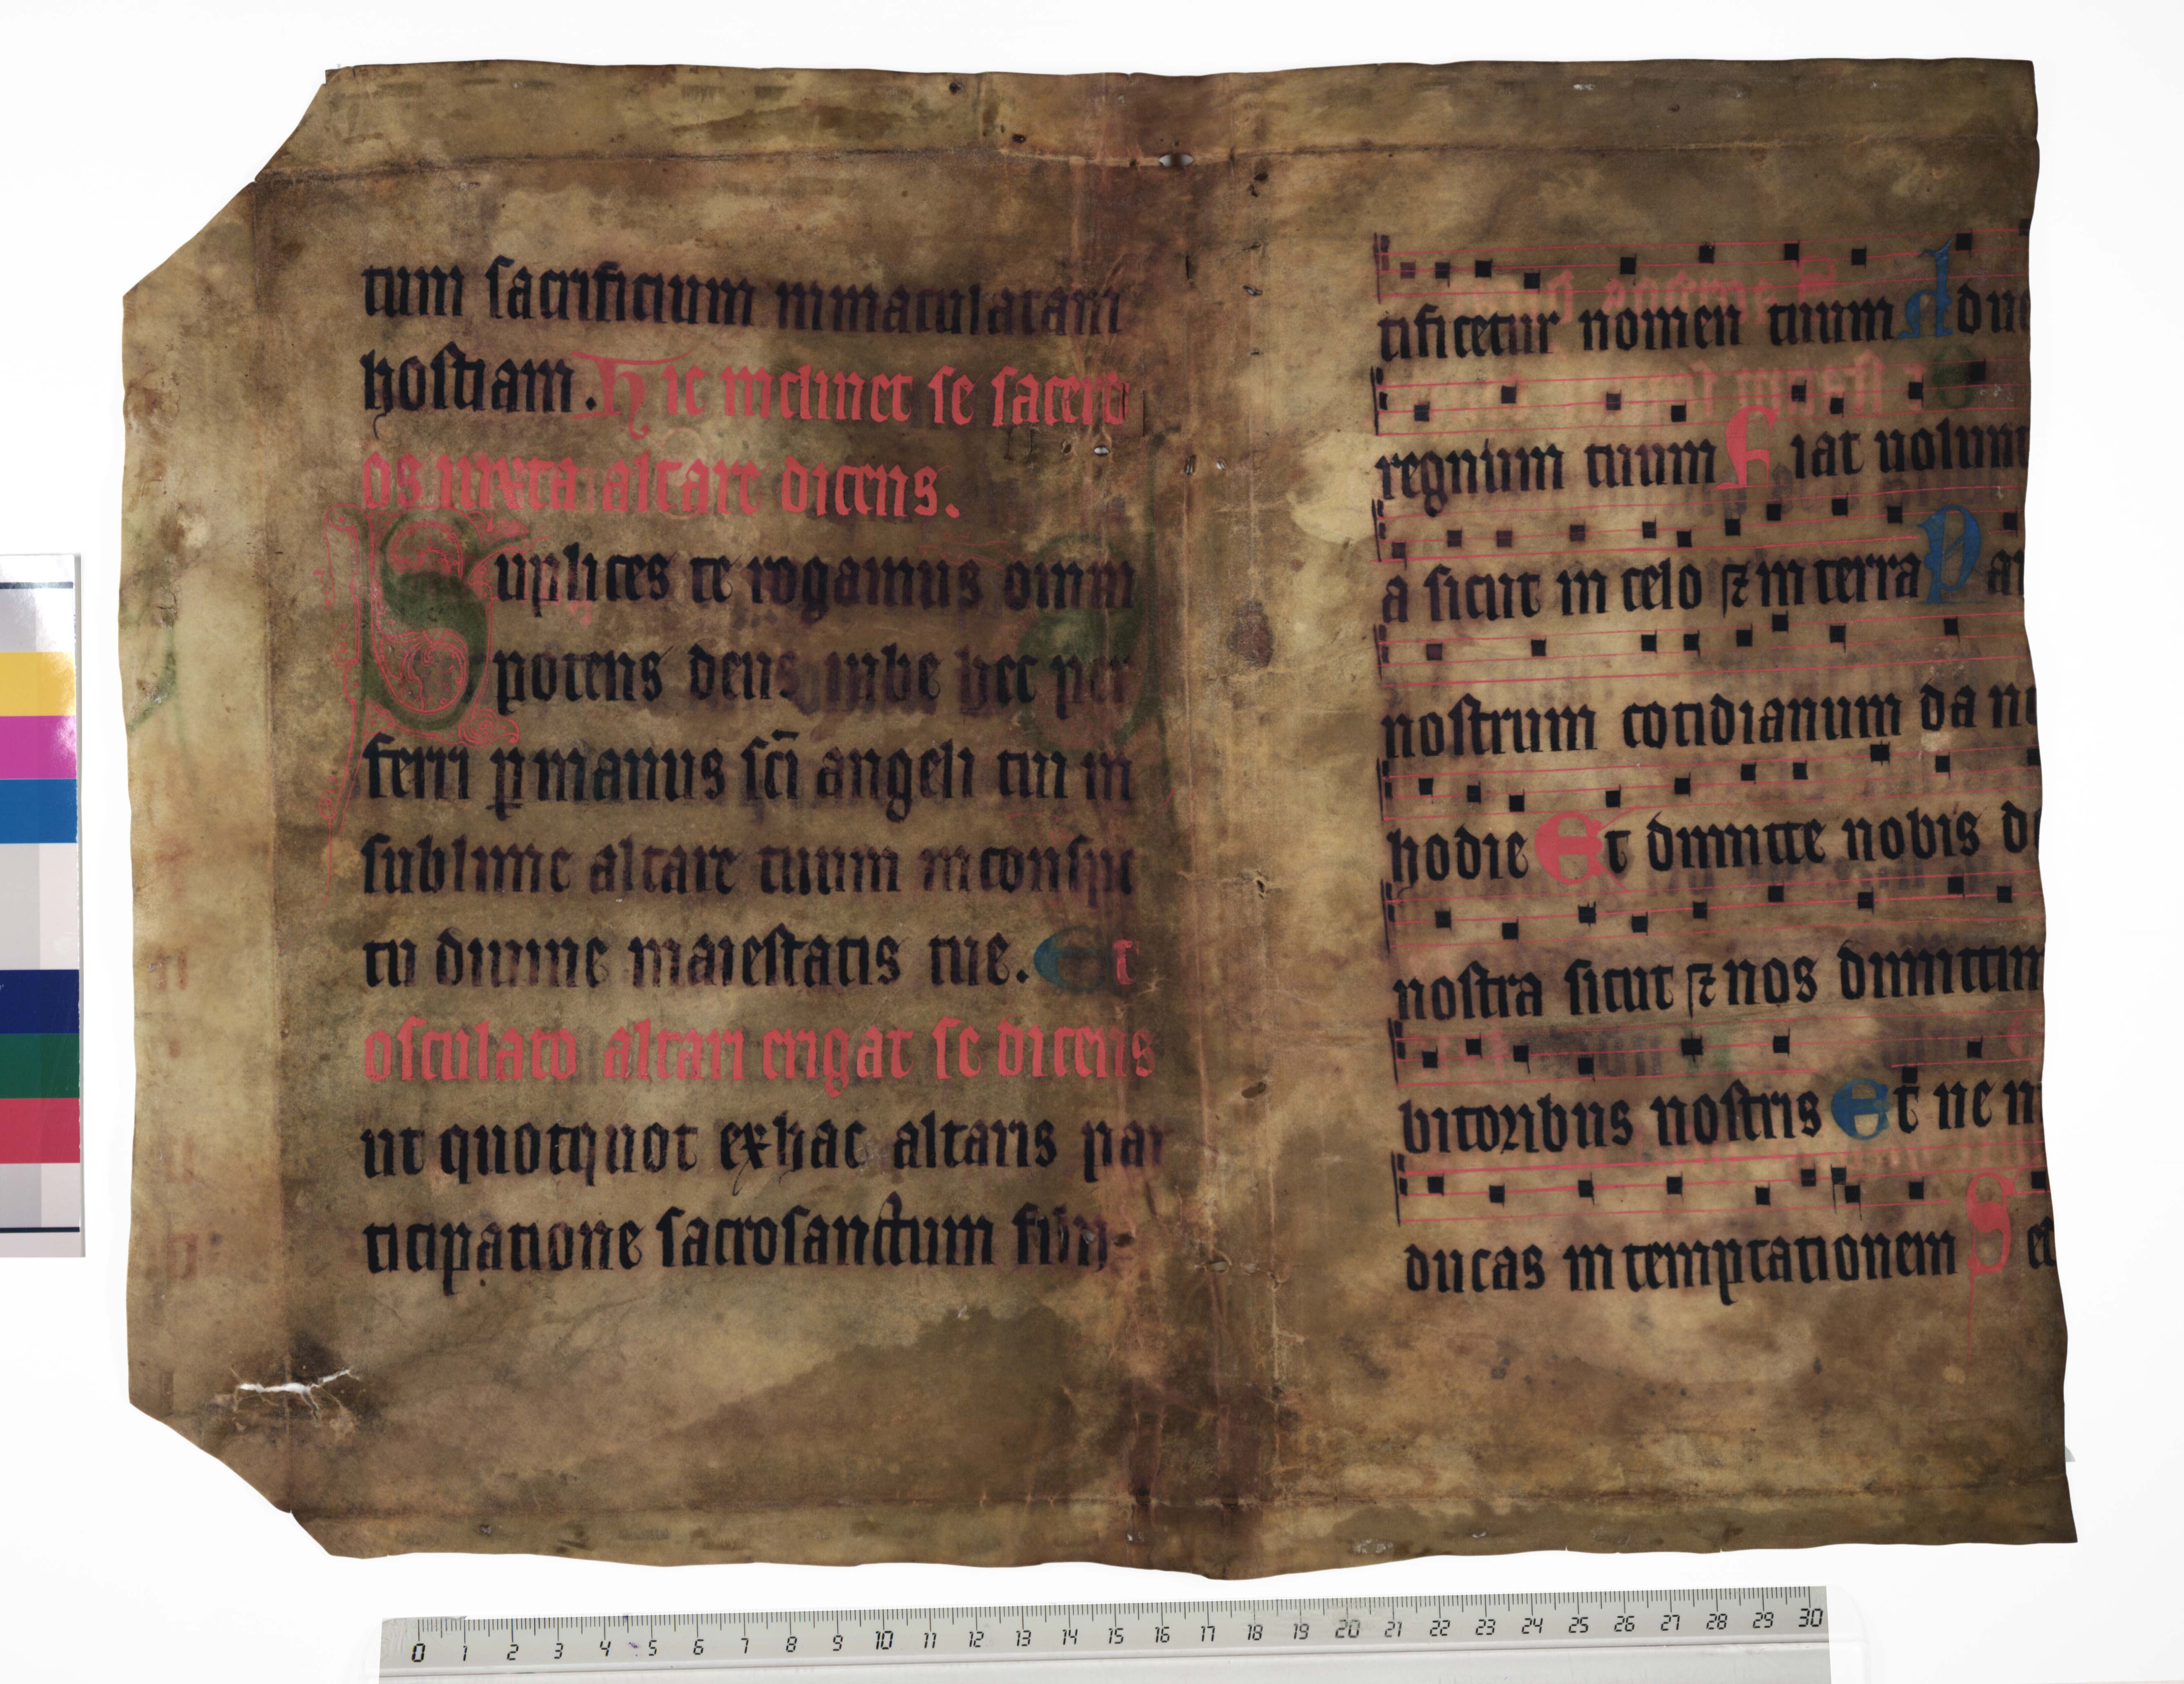 tum sacrificium immaculatam
hostiam. Hic inclinet se sacerd
os iuxta altare dicens.
Suplices te rogamus omni
potens deus iube hec per
ferri ꝑ manus sc̄i angeli tui in
sublime altare tuum in conspe
tu diuine maiestatis tue. Et
osculato altari erigat se dicens
ut quotquot ex hac altaris par
ticipatione sacrosanctum filii-
tificetur nomen tuum Adue
regnum tuum Fiat uolunt
a sicut in celo ⁊ in terra Pa
nostrum cotidianum da no
hodie Et dimitte nobis de
nostra sicut ⁊ nos dimittim
bitoribus nostris Et ne in
ducas in temptationem Set
0 1 2 3 4 5 6 7 8 9 10 11 12 13 14 15 16 17 18 19 20 21 22 23 24 25 26 27 28 29 30